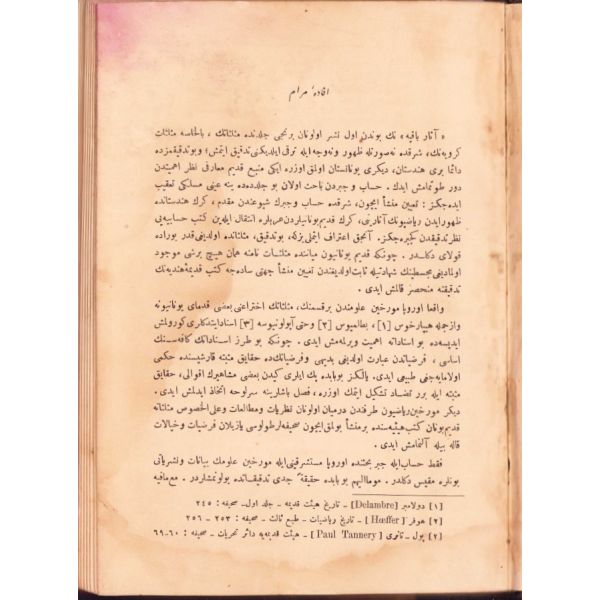 افادهٔ مرام
« آثار باقیه » نك بوندن اول نشر اولونان برنجی جلدنده مثلثاتك ، بالخاصه مثلثات
كرویه‌نك، شرقده نه‌صورتله ظهور ونه‌وجه ایله ترقی ایلدیكنی تدقیق ایتمش؛ وبوتدقیقمزده
دائما بری هندستان، دیكری یونانستان اولمق اوزره ایكی منبع قدیم معارفی نظر اهمیتدن
دور طوتمامش ایدك . حساب وجبردن باحث اولان بو جلدده‌ده ینه عینی مسلكی تعقیب
ایده‌جكز : تعیین منشأ ایچون، شرقده حساب وجبرك شیوعندن مقدم ، كرك هندستانده
ظهورایدن ریاضیونك آثارینی، كرك قدیم یونانیلردن عربلره انتقال ایله‌ین كتب حسابیه‌یی
نظر تدقیقدن كچیره‌جكز. آنجق اعتراف ایتملی‌یزكه، بوتدقیق، مثلثاتده اولدیغی‌قدر بوراده
قولای دكلدر . چونكه قدیم یونانیون میاننده مثلثات نامنه همان هیچ برشی موجود
اولمادیغی مجسطینك شهادتیله ثابت‌اولدیغندن تعیین منشأ جهتی ساده‌جه كتب قدیمهٔ هندیه‌نك
تدقیقنه منحصر قالمش ایدی .
واقعا اوروپا مورخین علومندن برقسمنك، مثلثاتك اختراعنی بعضی قدمای یونانیونه
وازجمله هیپارخوس [١] ، بطالمیوس [٢] وحتی آپولونیوسه [٣] اسنادایتدكلری كورولمش
ایدیسه‌ده بو اسناداته اهمیت ویرله‌مه‌مش ایدی . چونكه بو طرز اسناداتك كافه‌سنك
اساسی ، فرضیاتدن عبارت اولدیغی بدیهی وفرضیاتك‌ده حقایق مثبته قارشیسنده حكمی
اولامایه‌جغی طبیعی ایدی. یالكز بوبابده پك ایلری كیدن بعضی مشاهیرك اقوالی، حقایق
مثبته ایله برر تضاد تشكیل ایتمك اوزره، فصل باشلرینه سرلوحه اتخاذ ایدلمش ایدی.
دیكر مورخین‌ریاضیون طرفندن درمیان اولونان نظریات ومطالعات وعلی‌الخصوص مثلثاته
قدیم‌یونان كتب‌هیئیه‌سنده برمنشأ بولمق‌ایچون صحیفه‌لرطولوسی یازیلان فرضیات وخیالات
قاله بیله آلنمامش ایدی .
فقط حساب‌ایله جبر بحثنده اوروپا مستشرقینی‌ایله مورخین علومك بیانات ونشریاتی
بونلره مقیس دكلدر . مومأالیهم بوبابده حقیقةً جدی تدقیقاتده بولونمشلردر . مع‌مافیه
[١] دولامبر [Delambre] ـ تاریخ هیئت قدیمه ـ جلد اول ـ صحیفه : ٢٤٥
[٢] هوفر [Hœffer] ـ تاریخ ریاضیات ـ طبع ثالث ـ صحیفه : ٢٥٣ ـ ٢٥٦
[٣] پول ـ تانری [Paul Tannery] ـ هیئت قدیمه‌یه دائر تحریات ـ صحیفه : ٦٠ـ٦٩